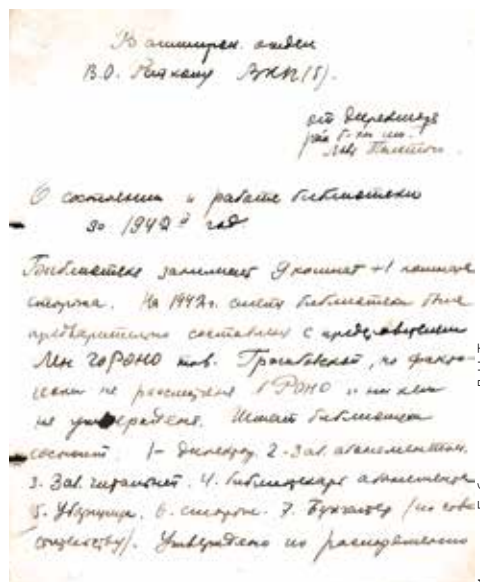 В.О. Райкому ВКП(б).
от директора
рай. б-ки им.
Льва Толстого.
О состоянии и работе библиотеки
за 1942й год
Библиотека занимает 9 комнат + 1 комната
сторожа. На 1942г. смета библиотеки была
предварительно составлена с представителем
Лен ГорОНО тов. но факти-
чески не РОНО и ни кем
не утверждена. Штат библиотеки
состоит 1- директор 2. Зав. абонементом.
3. Зав. читальней. 4. библиотекарь абонемента
5. Уборщица. 6. сторож. 7. Бухгалтер (по совме
стительству). Утверждено по распоряжению